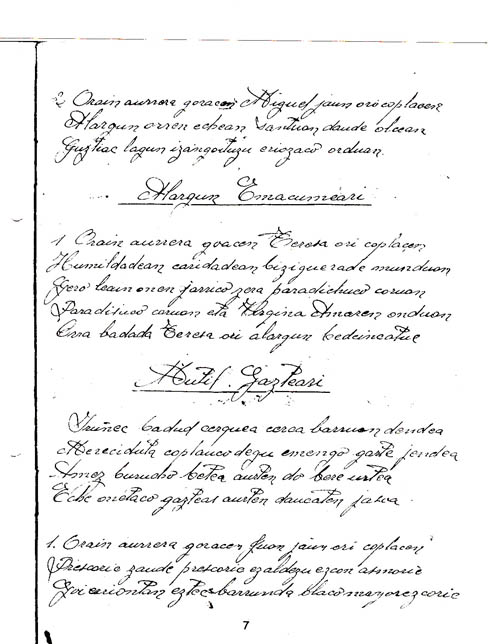 2 Orain aurrera goracen Miguel jaun ori coplacen
Alargun orren echean Santuan daude olcean
Guztiac lagun izangoituzu eriozaco orduan.
Alargun Emacumeari
1 Orain aurrera goacen Teresa ori coplacen
Humildadean caridadean bizi guerade munduan
Gero lean onen jarrico gera paradichuco coruan
Paradisuco coruan eta Virgina Amaren onduan
Orra badada Teresa ori alargun bedeincatue
Mutil Gazteari
Iruñec badud cerquea cerca barruan dendea
Mereciduta coplauco degu emengo gazte jendea
Amez burucho betea austen do bere urtea
Eche onetaco gazteas austen daucaten jasva
1. Orain aurrera goracen Juon jaun ori coplacen
Prescoric zaude prescoric ezaldezu ezcon asmoric
Goi curiontan eztec barrunda blaco mayorezcoric
7